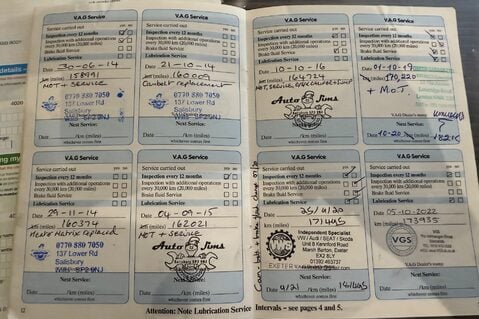 V.A.G Service
Service carried out yes no
Inspection every 12 months
Inspection with additional operations
every 30,000 km (20,000 miles)
Brake fluid Service
Lubrication Service
Date 30-06-14
km (miles) 158991
MOT + SERVICE
0770 880 7050
137 Lower Rd
Salisbury
Wilt- SP2 9NJ
Next Service:
Date /km (miles)
whichever comes first
V.A.G Service
Service carried out yes no
Inspection every 12 months
Inspection with additional operations
every 30,000 km (20,000 miles)
Brake fluid Service
Lubrication Service
Date 21-10-14
km (miles) 160009
Cambelt replacement
0770 880 7050
137 Lower Rd
Salisbury
Wilt- SP2 9NJ
Next Service:
Date /km (miles)
whichever comes first
V.A.G Service
Service carried out yes no
Inspection every 12 months
Inspection with additional operations
every 30,000 km (20,000 miles)
Brake fluid Service
Lubrication Service
Date 10-10-16
km (miles) 164724
MOT, SERVICE
Auto Jims
Next Service:
Date /km (miles)
whichever comes first
V.A.G Service
Service carried out yes no
Inspection every 12 months
Inspection with additional operations
every 30,000 km (20,000 miles)
Brake fluid Service
Lubrication Service
Date 01-10-19
km (miles) 170,220
+ M.o.T.
V.A.G Dealer's stamp
Next Service:
Date 10-20 /km (miles)
whichever comes first
V.A.G Service
Service carried out yes no
Inspection every 12 months
Inspection with additional operations
every 30,000 km (20,000 miles)
Brake fluid Service
Lubrication Service
Date 29-11-14
km (miles) 160374
Heater Matrix replaced
0770 880 7050
137 Lower Rd
Salisbury
Wilt- SP2 9NJ
Next Service:
Date /km (miles)
whichever comes first
V.A.G Service
Service carried out yes no
Inspection every 12 months
Inspection with additional operations
every 30,000 km (20,000 miles)
Brake fluid Service
Lubrication Service
Date 04-09-15
km (miles) 162021
MOT + SERVICE
Auto Jims
Next Service:
Date /km (miles)
whichever comes first
V.A.G Service
Service carried out yes no
Inspection every 12 months
Inspection with additional operations
every 30,000 km (20,000 miles)
Brake fluid Service
Lubrication Service
km (miles)
Independent Specialist
VW / Audi / SEAT / Skoda
Unit 8 Kenniford Road
Marsh Barton, Exeter
EX2 8LY
01392 453737
EXETER
Date /km (miles)
whichever comes first
V.A.G Service
Service carried out yes no
Inspection every 12 months
Inspection with additional operations
every 30,000 km (20,000 miles)
Brake fluid Service
Lubrication Service
Date 05-10-2022
km (miles) 173935
VGS
V.A.G Dealer's stamp
Next Service:
Date /km (miles)
whichever comes first
12
Attention: Note Lubrication Service Intervals – see pages 4 and 5.